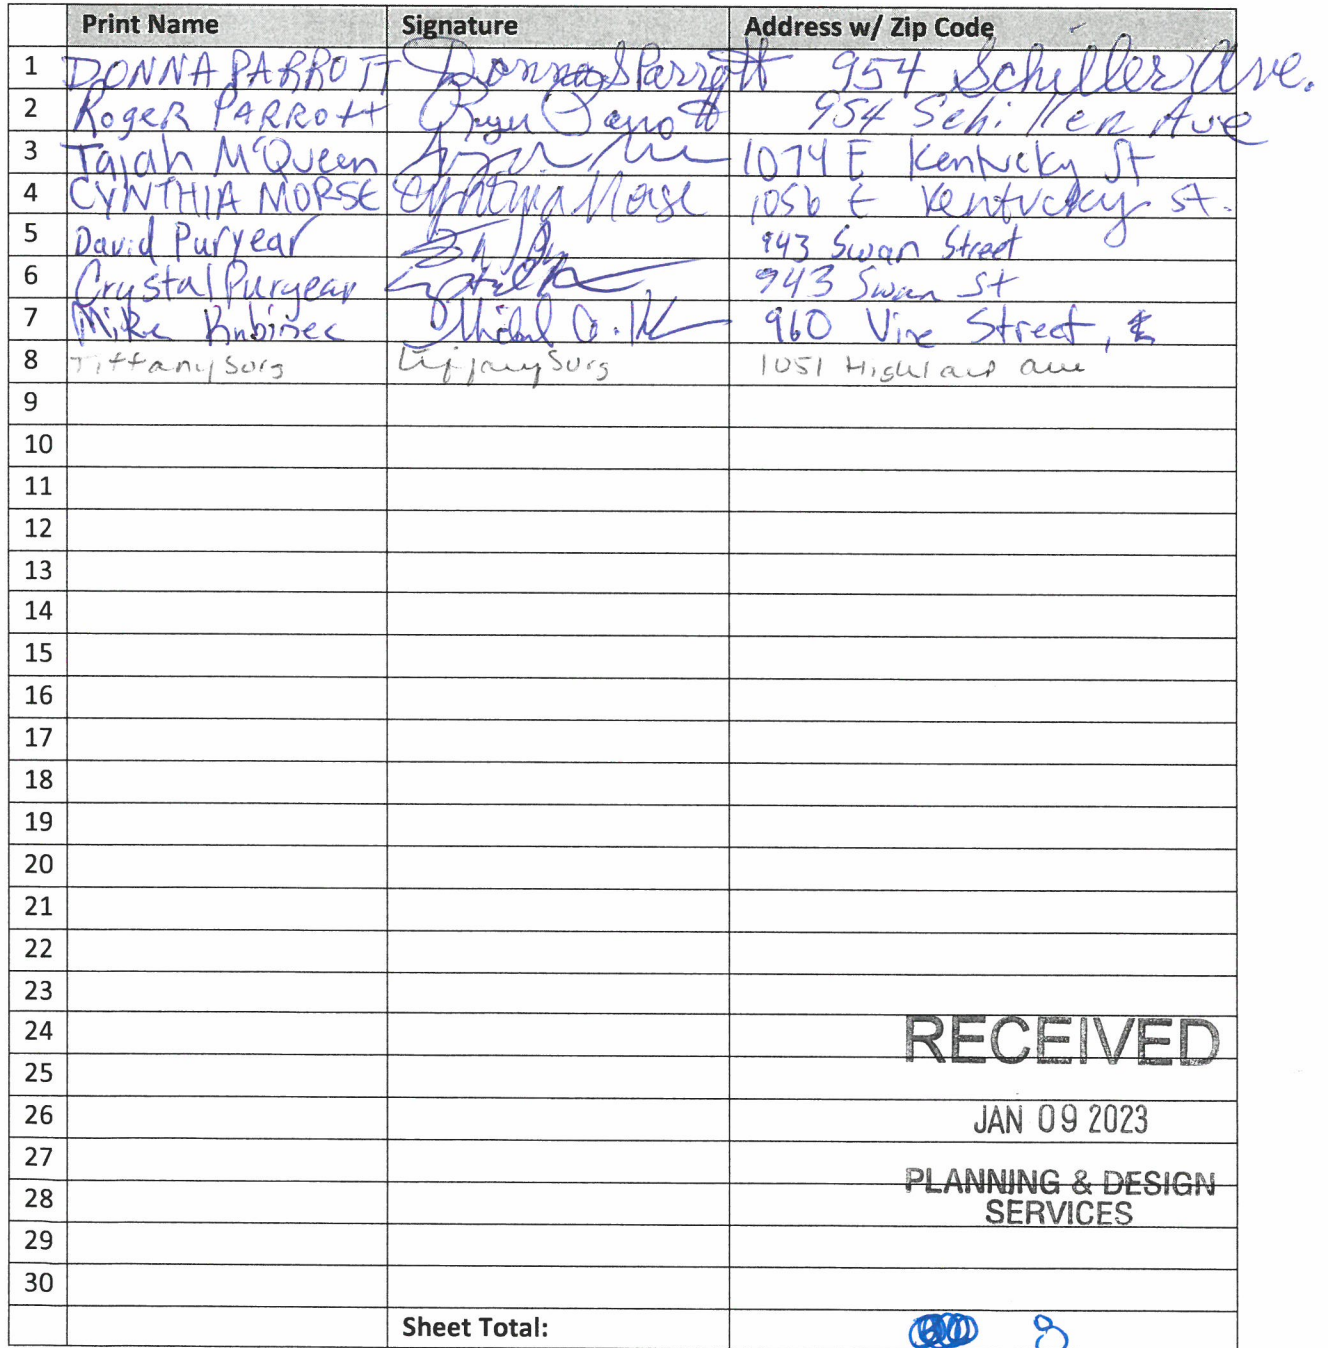 Print Name Signature Address w/ Zip Code
1 DONNA PARROTT Donna S Parrott 954 Schiller Ave.
2 Roger PARROtt Roger Parrott 954 Schiller Ave
3 Taiah McQueen 1074 E Kentucky St
4 CYNTHIA MORSE Cynthia Morse 1056 E Kentucky St.
5 David Puryear 943 Swan Street
6 Crystal Puryear 943 Swan St
7 Mike Kubinec 960 Vine Street,
8 Tiffany Surg Tiffany Surg 1051 Highland ave
9
10
11
12
13
14
15
16
17
18
19
20
21
22
23
24 RECEIVED
25
26 JAN 09 2023
27
28 PLANNING & DESIGN
SERVICES
29
30
Sheet Total: 8